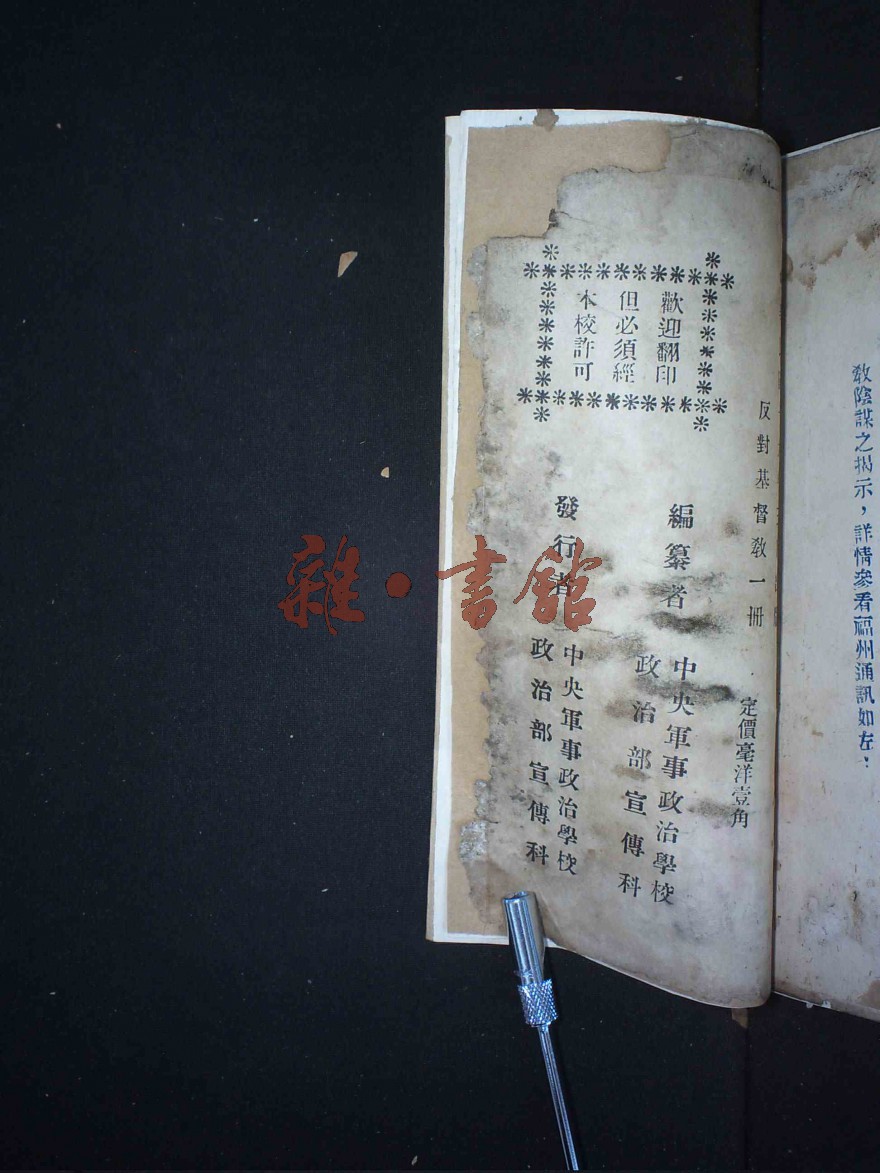 教陰謀之揭示，詳情參看福州通訊如左：
反對基督教一冊
定價毫洋壹角
編纂者
中央軍事政治學校
政治部宣傳科
發行者
中央軍事政治學校
政治部宣傳科
歡迎翻印
但必須經
本校許可
雜·書館